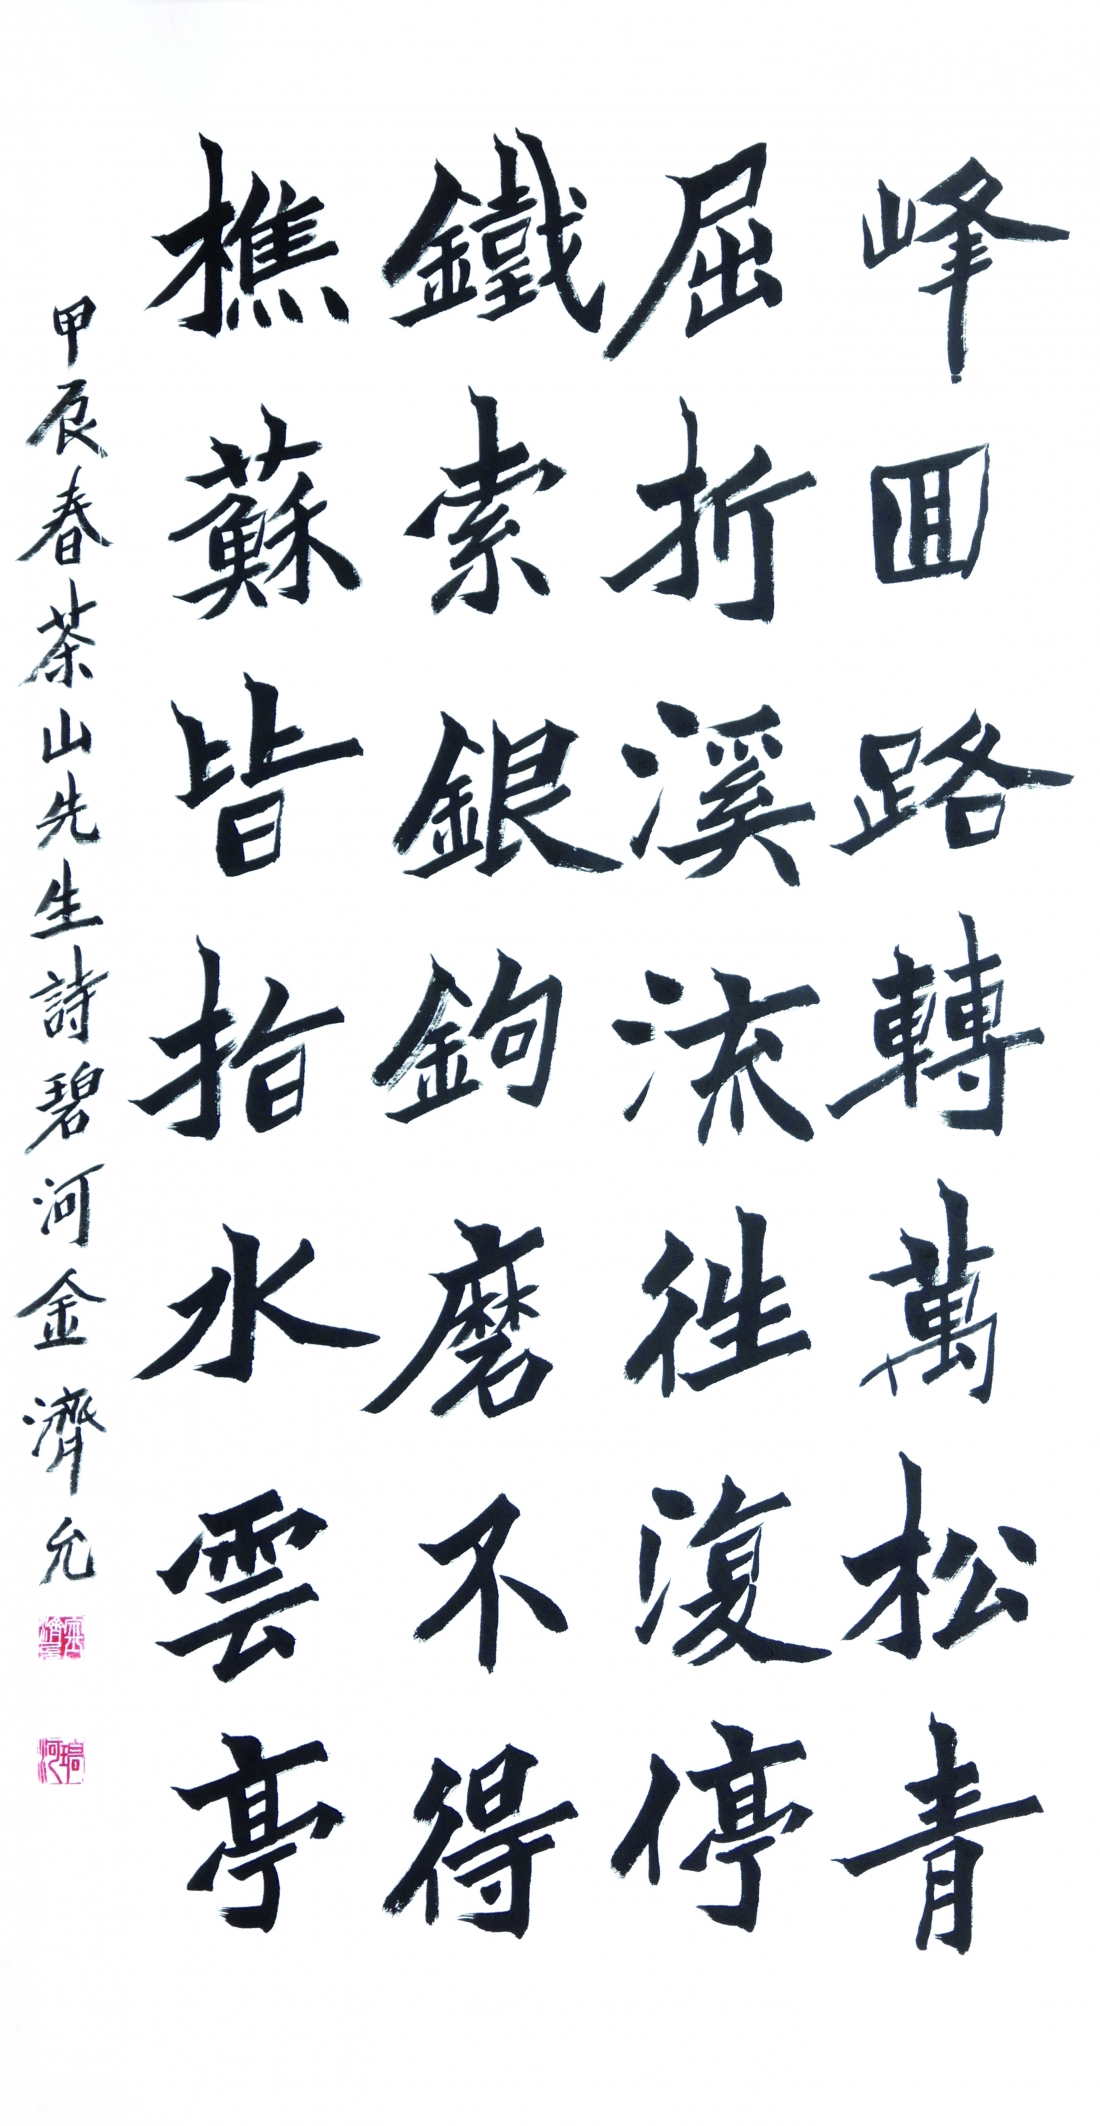 峰回路轉萬松青
屈折溪流往復停
鐵索銀鉤磨不得
樵蘇皆指水雲亭
甲辰春茶山先生詩碧河金濟允